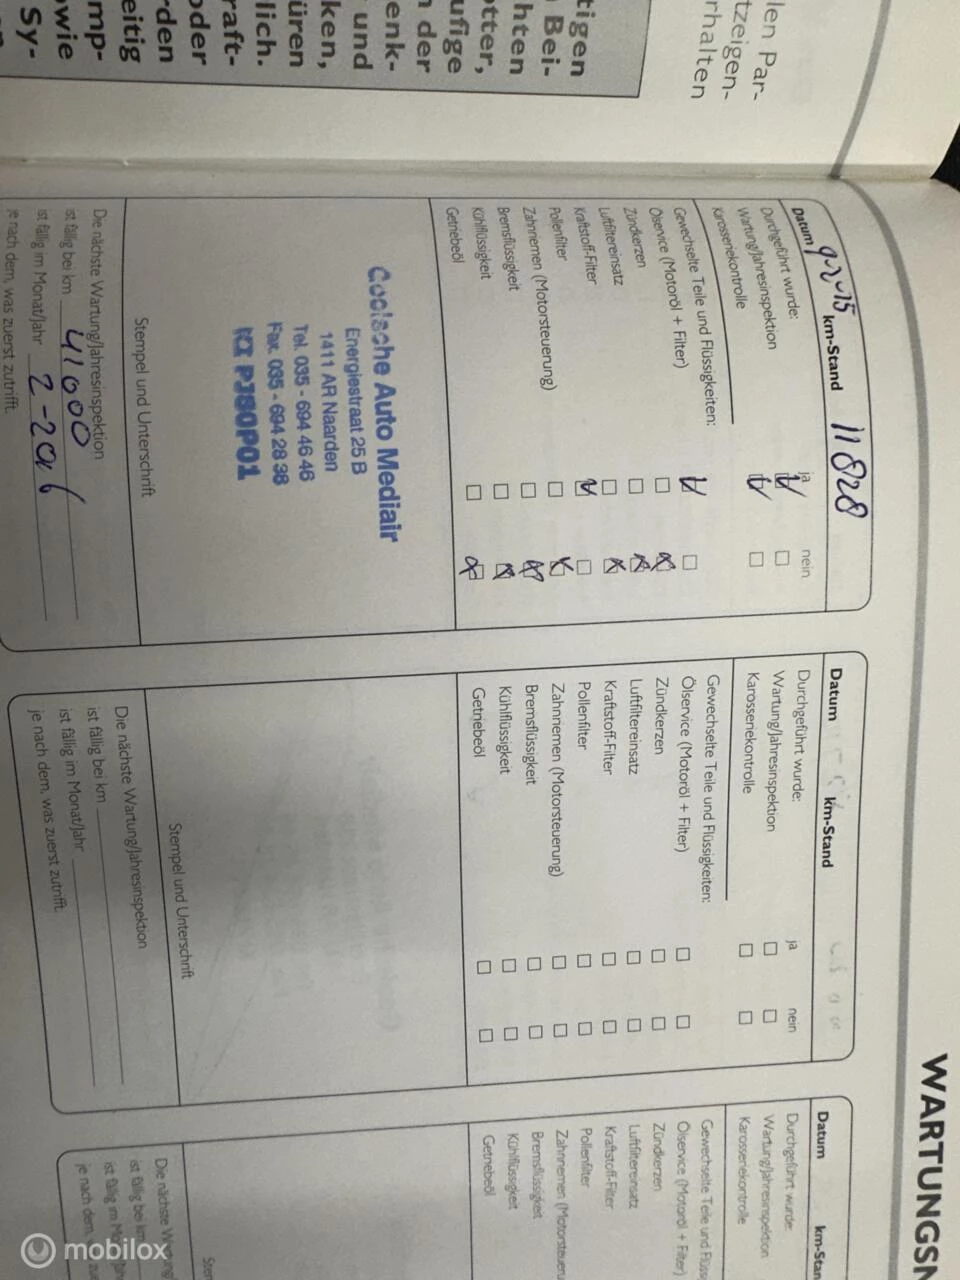 len Par-
tzeigen-
rhalten
tigen
Bei-
hten
otter,
ufige
n der
enk-
und
ken,
üren
lich.
raft-
oder
rden
eitig
mp-
owie
Sy-
WARTUNGSN
Datum 9-2015 km-Stand 11828
Durchgeführt wurde: ja nein
Wartung/Jahresinspektion
Karosseriekontrolle
Gewechselte Teile und Flüssigkeiten:
Ölservice (Motoröl + Filter)
Zündkerzen
Luftfiltereinsatz
Kraftstoff-Filter
Pollenfilter
Zahnriemen (Motorsteuerung)
Bremsflüssigkeit
Kühlflüssigkeit
Getriebeöl
Cooische Auto Mediair
Energiestraat 25 B
1411 AR Naarden
Tel. 035 - 694 46 46
Fax. 035 - 694 28 38
PJ80P01
Stempel und Unterschrift
Die nächste Wartung/Jahresinspektion
ist fällig bei km 41000
ist fällig im Monat/Jahr 2-2016
je nach dem, was zuerst zutrifft.
Datum km-Stand
Durchgeführt wurde: ja nein
Wartung/Jahresinspektion
Karosseriekontrolle
Gewechselte Teile und Flüssigkeiten:
Ölservice (Motoröl + Filter)
Zündkerzen
Luftfiltereinsatz
Kraftstoff-Filter
Pollenfilter
Zahnriemen (Motorsteuerung)
Bremsflüssigkeit
Kühlflüssigkeit
Getriebeöl
Stempel und Unterschrift
Die nächste Wartung/Jahresinspektion
ist fällig bei km
ist fällig im Monat/Jahr
je nach dem, was zuerst zutrifft.
Datum km-Stan
Durchgeführt wurde:
Wartung/Jahresinspektion
Karosseriekontrolle
Gewechselte Teile und Flüss
Ölservice (Motoröl + Filter)
Zündkerzen
Luftfiltereinsatz
Kraftstoff-Filter
Pollenfilter
Zahnriemen (Motorsteueru
Bremsflüssigkeit
Kühlflüssigkeit
Getriebeöl
Sten
Die nächste Wartung/
ist fällig bei km
ist fällig im Mo
je nach dem, zu
mobilox